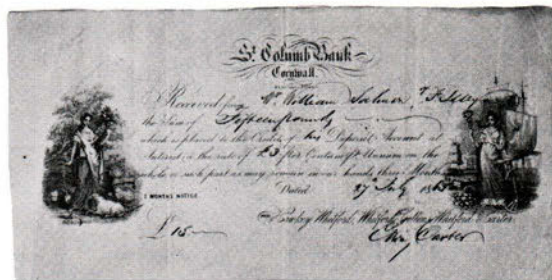 St. Columb Bank
Cornwall.
Received from Mr. William
the Sum of Fifteen pounds
which is placed to the Credit of his Deposit Account at
Interest at the rate of £3 per Cent per Annum on the
whole or such part as may remain in our hands three Months
Dated 27 July
3 MONTHS NOTICE
Whitford,
£15
Carter